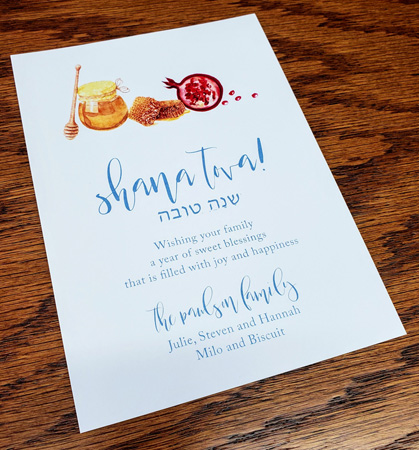 shana tova!
שנה טובה
Wishing your family
a year of sweet blessings
that is filled with joy and happiness
the paulson family
Julie, Steven and Hannah
Milo and Biscuit